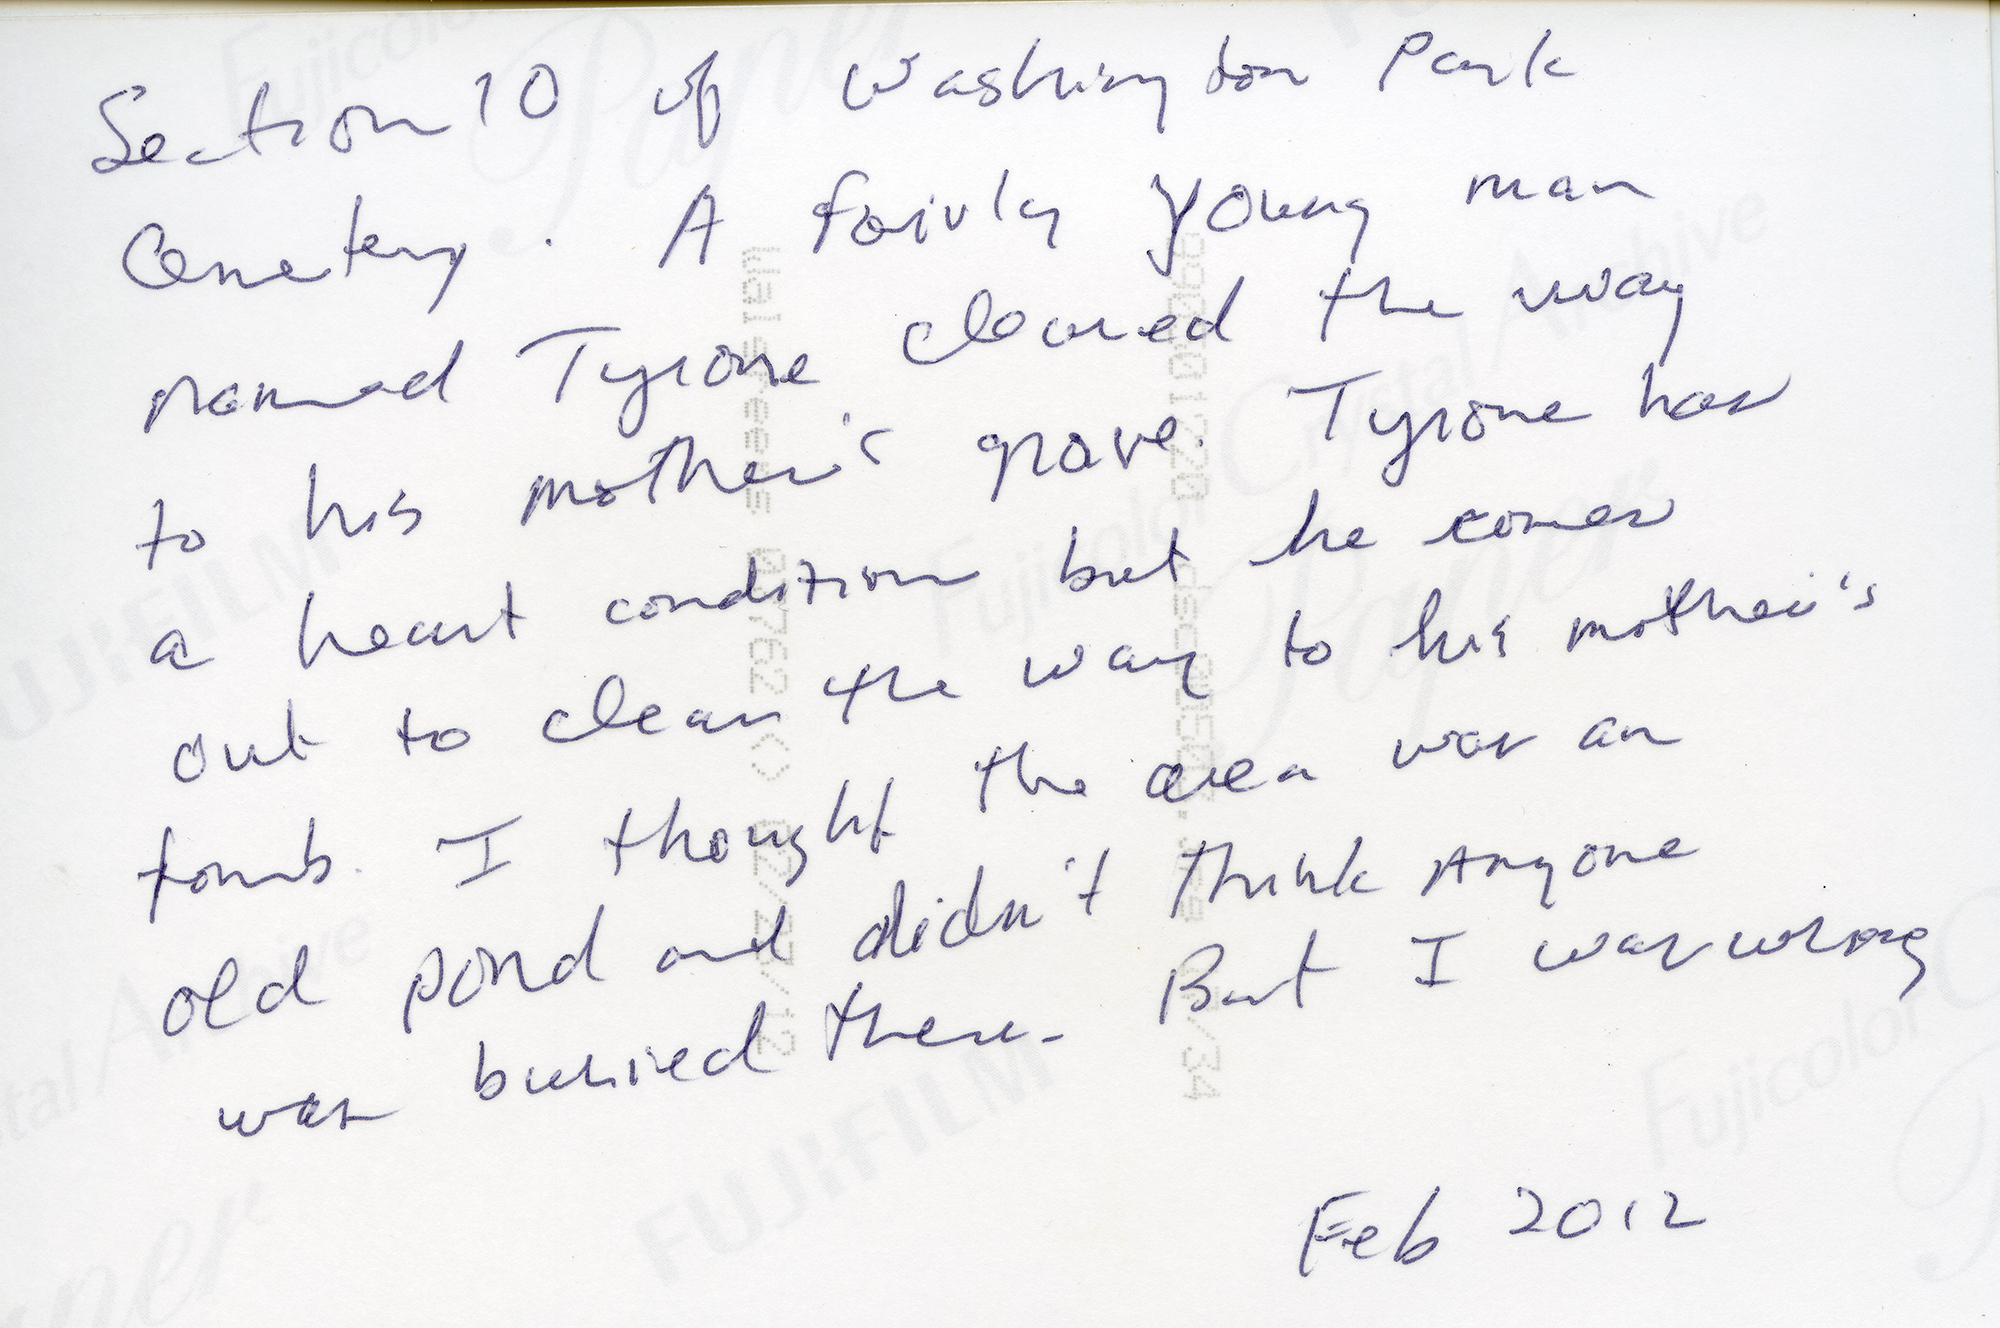 Section 10 of Washington Park
Cemetery. A fairly young man
named Tyrone cleared the way
to his mother's grave. Tyrone has
a heart condition but he comes
out to clean the way to his mother's
tomb. I thought the area was an
old pond and didn't think Anyone
was buried there. But I was wrong
Feb 2012
FUJIFILM
Fujicolor Crystal Archive
Paper